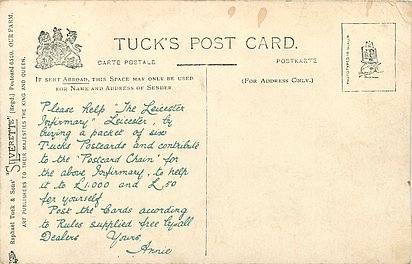 TUCK'S POST CARD.
CARTE POSTALE
POSTKARTE
IF SENT ABROAD, THIS SPACE MAY ONLY BE USED
FOR NAME AND ADDRESS OF SENDER.
(FOR ADDRESS ONLY.)
Please help "The Leicester
Infirmary" Leicester, by
buying a packet of six
Tucks Postcards and contribute
to the 'Postcard Chain' for
the above Infirmary, to help
it to £1,000 and £50
for yourself
Post the Cards according
to Rules supplied free by all
Dealers Yours,
Annie
Raphael Tuck & Sons' "SILVERETTE" (Regd.) Postcard 6520. OUR FARM.
ART PUBLISHERS TO THEIR MAJESTIES THE KING AND QUEEN.